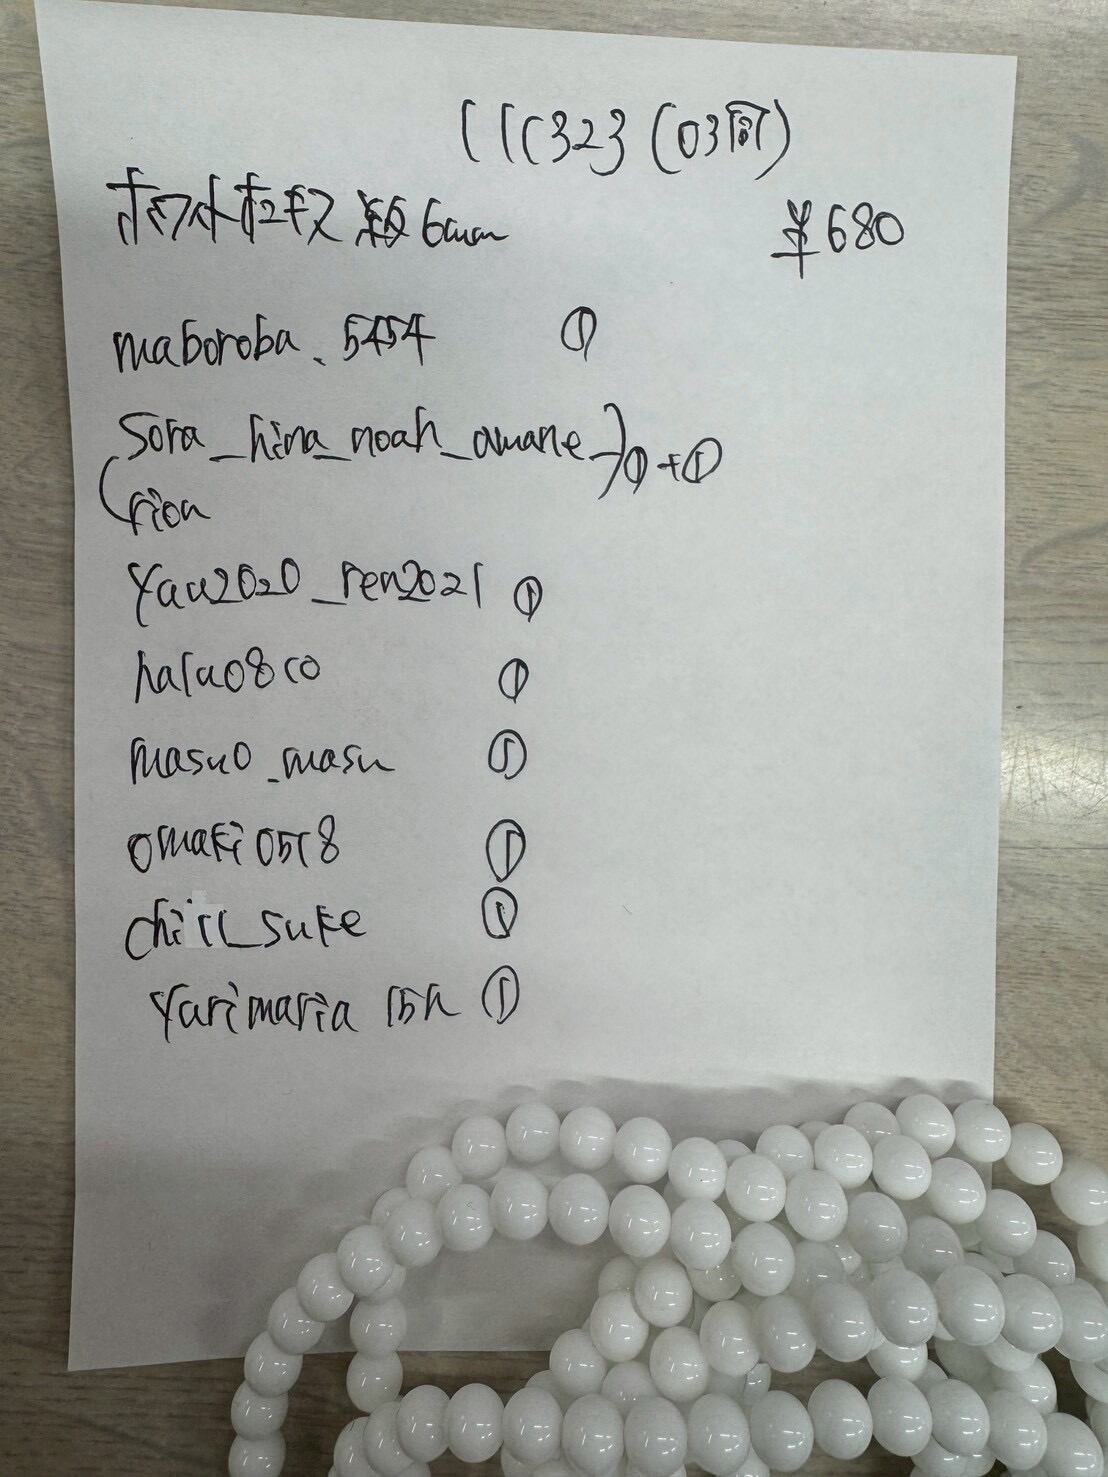 111323 (03阿)
ホワイトオニキス 級6mm ¥680
maboroba_5454 ①
sora_hina_noah_amane_ ①+①
rion
yau2020_ren2021 ①
halu08co ①
masuo_masu ①
omaki0518 ①
chill_suke ①
yurimaria 15h ①